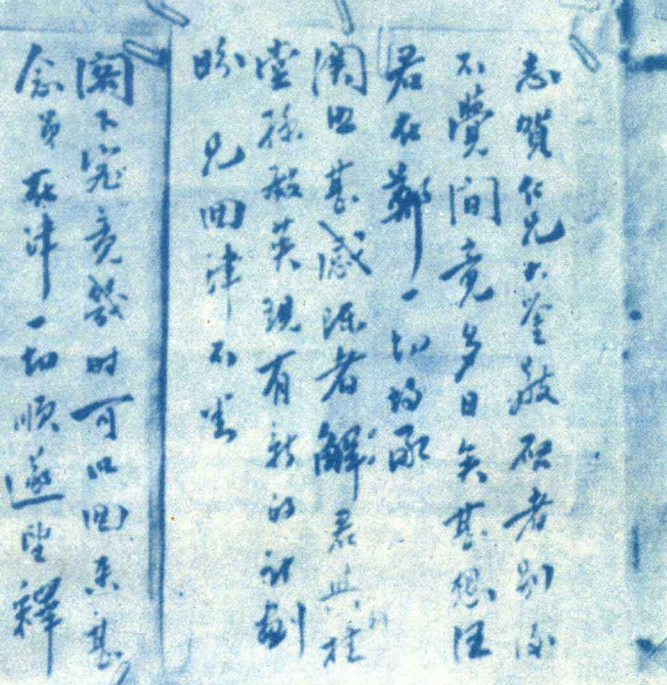 志賀仁兄大鉴敬启者别后
不觉间竟多日矣甚想汪
君在鄭一切均承
阁照甚感源者解君與桂
堂孫殿英現有新的計劃
盼 兄回津不坐
阁下究竟幾时可以回来甚
念弟在津一切順遂望釋